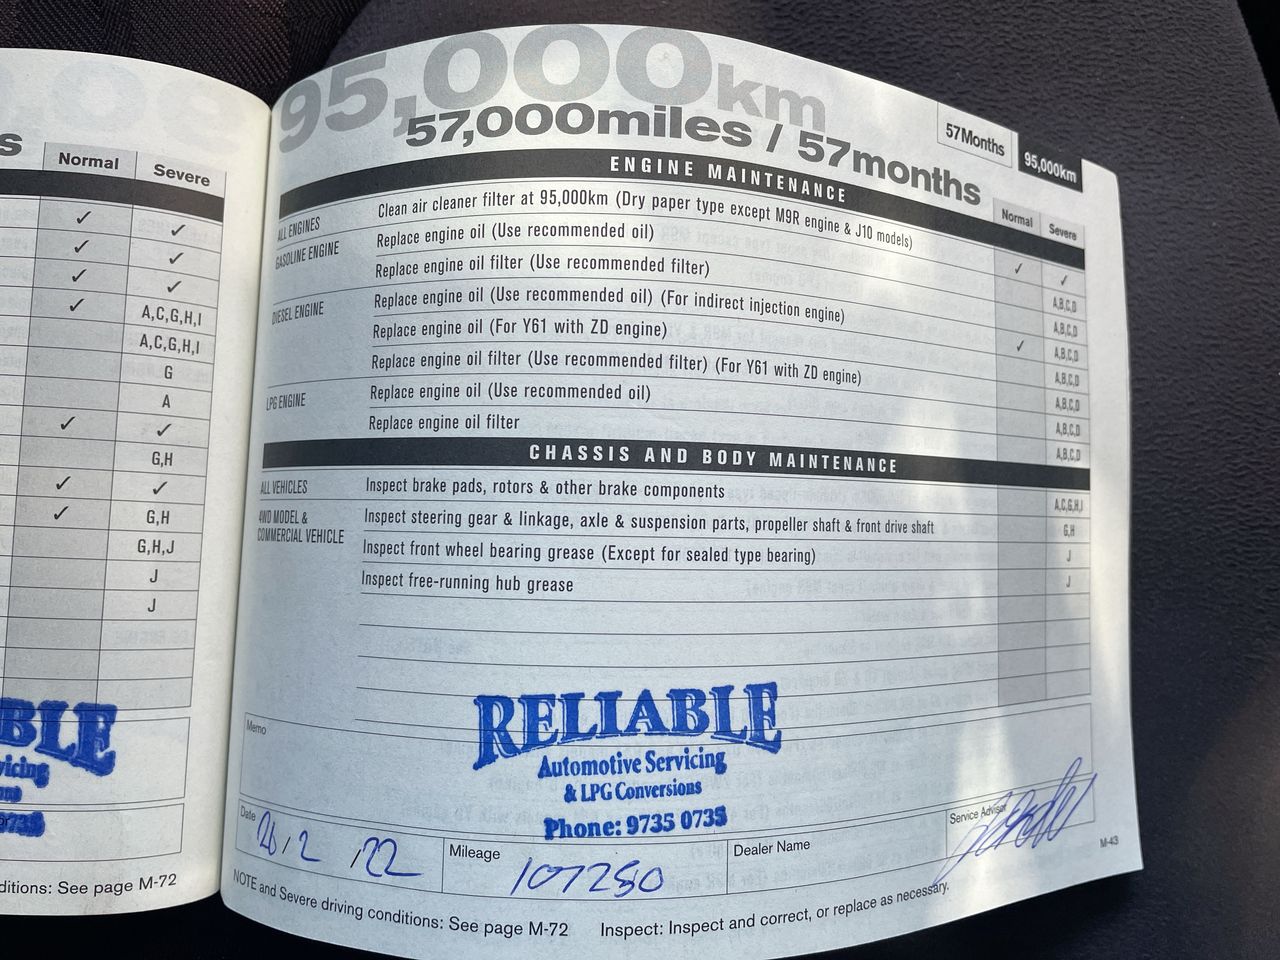 s
Normal
Severe
✓ ✓
✓ ✓
✓ ✓
✓ A,C,G,H,I
A,C,G,H,I
G
A
✓ ✓
G,H
✓ ✓
✓ G,H
G,H,J
J
J
BLE
vicing
ditions: See page M-72
95,000km
57,000miles / 57months
57Months
95,000km
ENGINE MAINTENANCE
Normal
Severe
ALL ENGINES
Clean air cleaner filter at 95,000km (Dry paper type except M9R engine & J10 models) ✓ ✓
GASOLINE ENGINE
Replace engine oil (Use recommended oil) A,B,C,D
Replace engine oil filter (Use recommended filter) A,B,C,D
DIESEL ENGINE
Replace engine oil (Use recommended oil) (For indirect injection engine) ✓ A,B,C,D
Replace engine oil (For Y61 with ZD engine) A,B,C,D
Replace engine oil filter (Use recommended filter) (For Y61 with ZD engine) A,B,C,D
LPG ENGINE
Replace engine oil (Use recommended oil) A,B,C,D
Replace engine oil filter A,B,C,D
CHASSIS AND BODY MAINTENANCE
ALL VEHICLES
Inspect brake pads, rotors & other brake components A,C,G,H,I
4WD MODEL &
COMMERCIAL VEHICLE
Inspect steering gear & linkage, axle & suspension parts, propeller shaft & front drive shaft G,H
Inspect front wheel bearing grease (Except for sealed type bearing) J
Inspect free-running hub grease J
Memo
RELIABLE
Automotive Servicing
& LPG Conversions
Phone: 9735 0735
Date
26/2/22
Mileage
107280
Dealer Name
Service Advisor
M-43
NOTE and Severe driving conditions: See page M-72
Inspect: Inspect and correct, or replace as necessary.